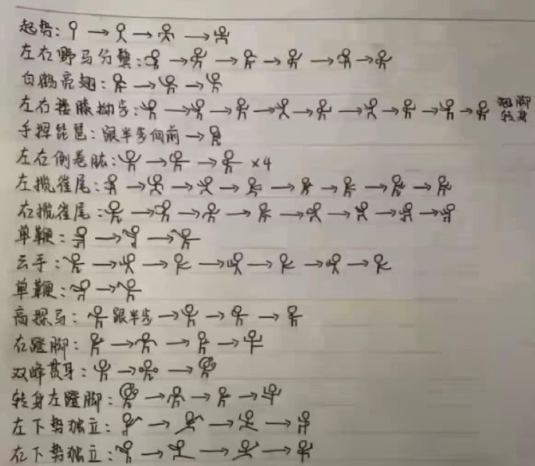 起势:
左右野马分鬃:
白鹤亮翅:
左右搂膝拗步: 翘脚转身
手挥琵琶:跟半步向前
左右倒卷肱: ×4
左揽雀尾:
右揽雀尾:
单鞭:
云手:
单鞭:
高探马: 跟半步
右蹬脚:
双峰贯耳:
转身左蹬脚:
左下势独立:
右下势独立: